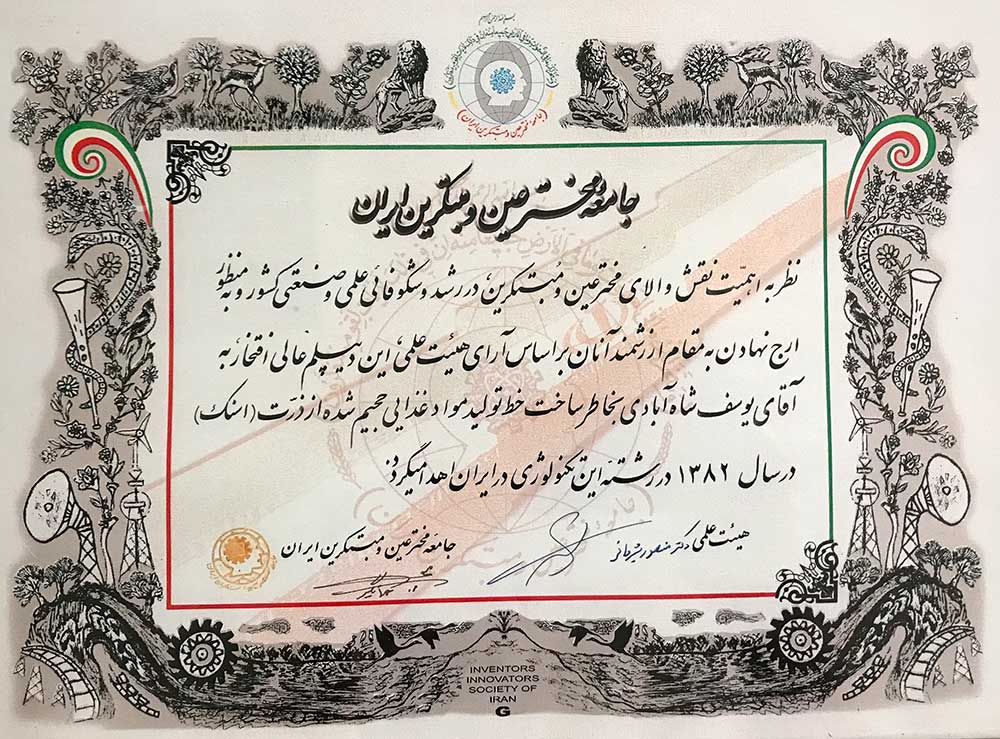 بسم الله الرحمن الرحیم
(جامعه مخترعین و مبتکرین ایران)
جامعه مخترعین و مبتکرین ایران
نظر به اهمیّت نقش والای مخترعین و مبتکرین، در رشد و شکوفائی علمی و صنعتی کشور و به منظور
ارج نهادن به مقام ارزشمند آنان بر اساس آرای هیئت علمی، این دیپلم عالی افتخار به
آقای یوسف شاه آبادی بخاطر ساخت خط تولید مواد غذایی حجیم شده از ذرّت (اسنک)
در سال ۱۳۸۲ در رشتهٔ این تکنولوژی در ایران اهدا میگردد
هیئت علمی دکتر منصور
جامعه مخترعین و مبتکرین ایران
INVENTORS
INNOVATORS
SOCIETY OF
IRAN
G